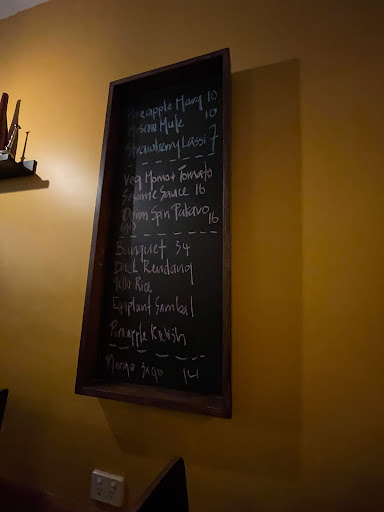 Pineapple Marg 10
Moscow Mule 10
Strawberry Lassi 7
Veg Momo + Tomato
Sesame Sauce 16
Onion Spin Pakavo 16
Banquet 34
Duck Rendang
Yello Rice
Eggplant Sambal
Pineapple
Mango Sago 14